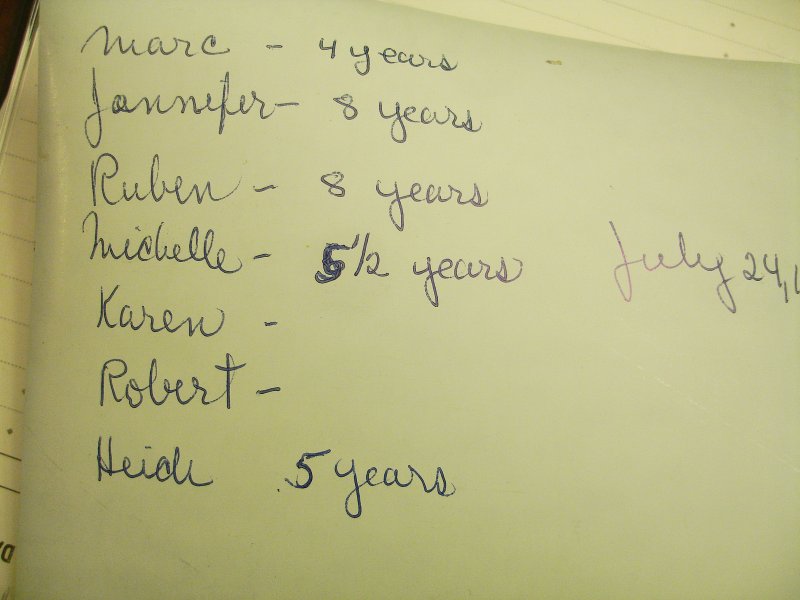 Marc - 4 years
Jennifer - 8 years
Ruben - 8 years
Michelle - 5 1/2 years July 24, 1
Karen -
Robert -
Heidi 5 years